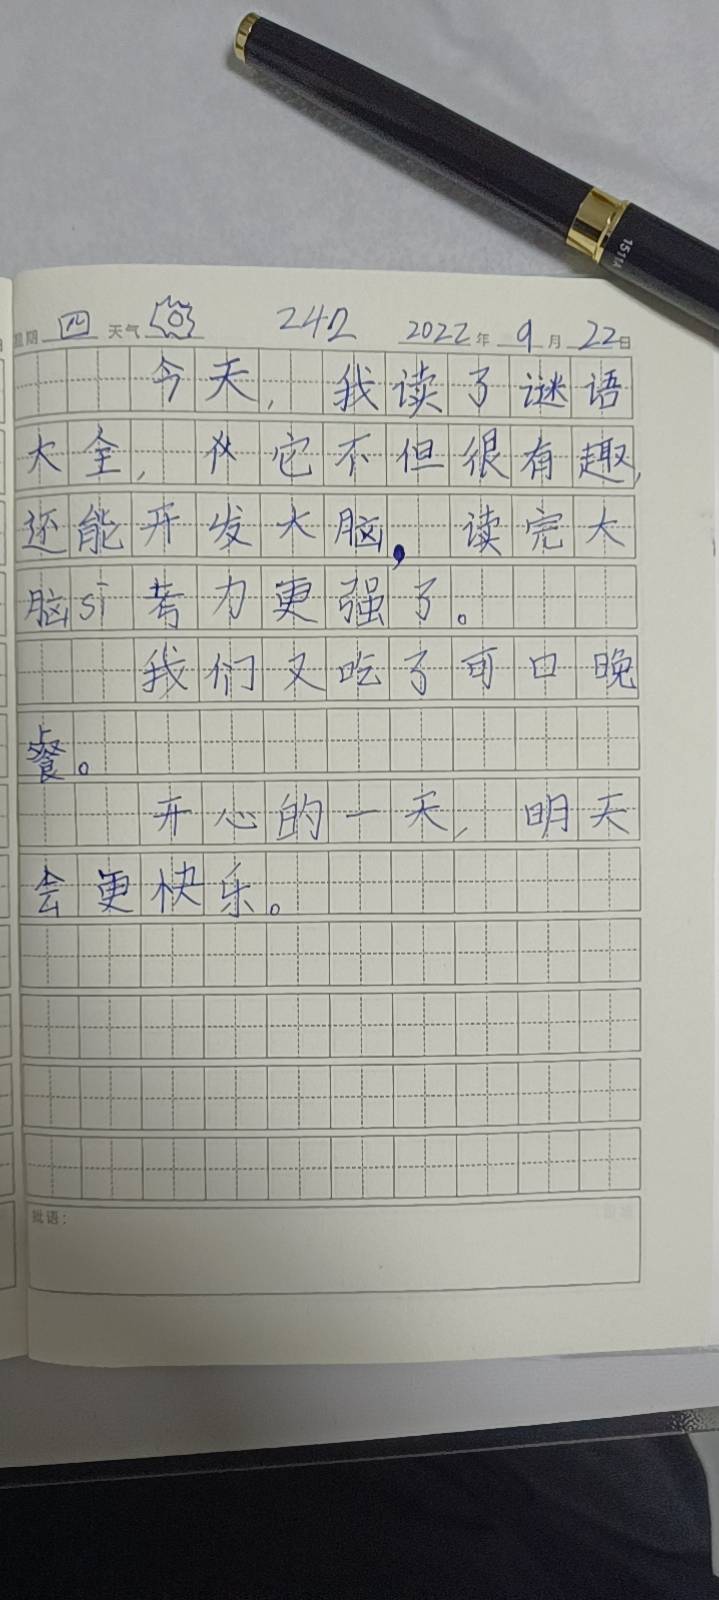 星期 四 天气 242 2022年 9月 22日
今天，我读了谜语
大全，它不但很有趣，
还能开发大脑，读完大
脑sī考力更强了。
我们又吃了可口晚
餐。
开心的一天，明天
会更快乐。
批语：
1511A